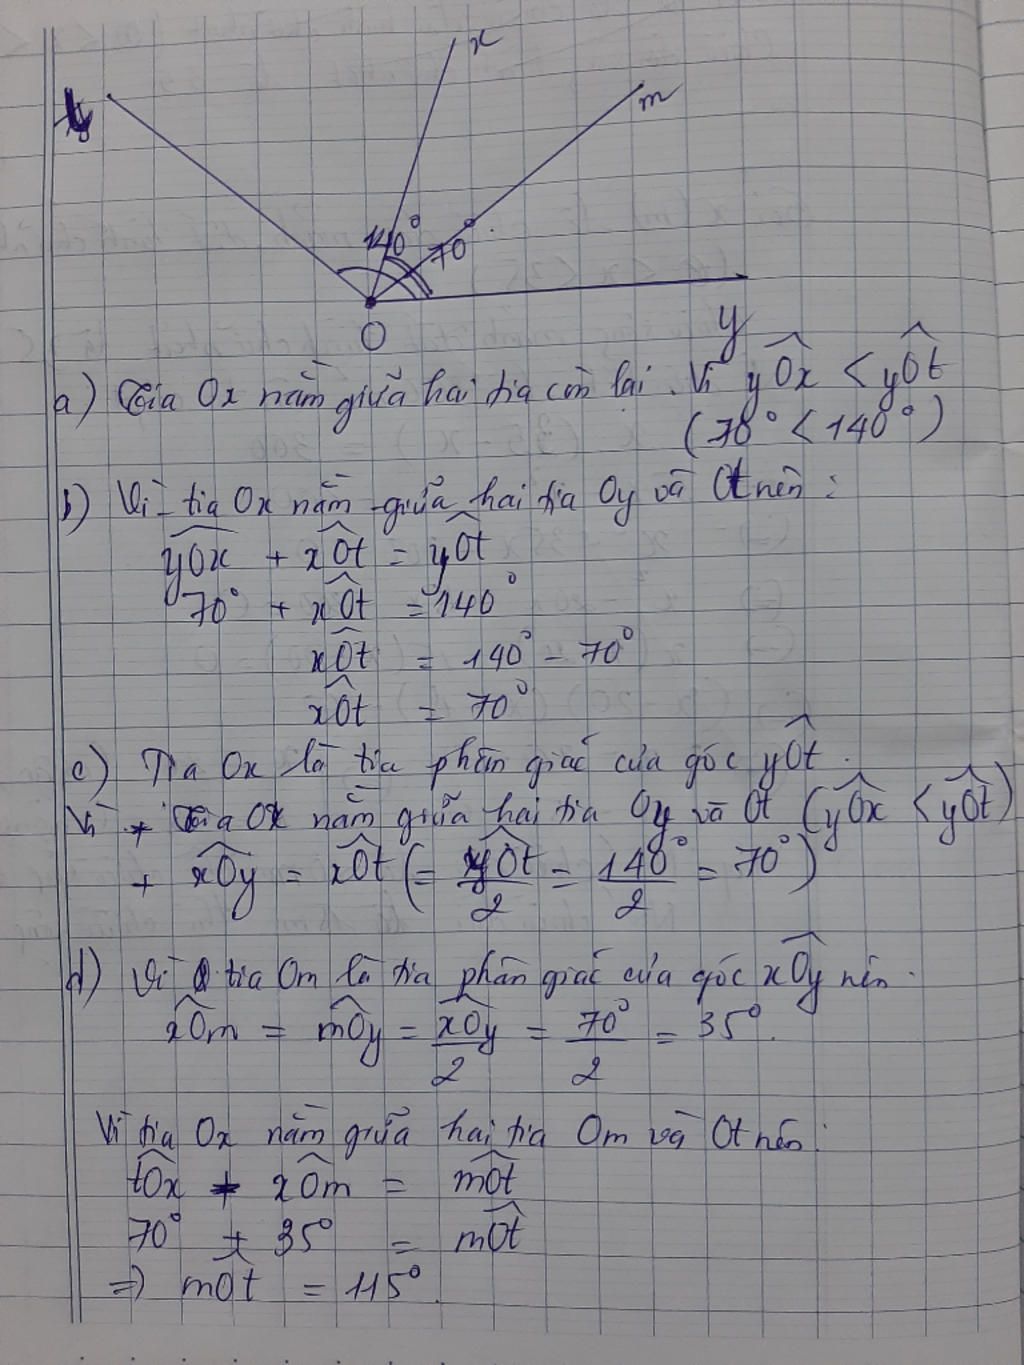 x
m
t
140° 70°
O
y
a) Tia Ox nằm giữa hai tia còn lại. Vì yÔx < yÔt
(70° < 140°)
b) Vì tia Ox nằm giữa hai tia Oy và Ot nên:
yÔx + xÔt = yÔt
70° + xÔt = 140°
xÔt = 140° - 70°
xÔt = 70°
c) Tia Ox là tia phân giác của góc yÔt.
Vì + Tia Ox nằm giữa hai tia Oy và Ot (yÔx < yÔt)
+ xÔy = xÔt (= yÔt/2 = 140°/2 = 70°)
d) Vì tia Om là tia phân giác của góc xÔy nên.
xÔm = mÔy = xÔy/2 = 70°/2 = 35°.
Vì tia Ox nằm giữa hai tia Om và Ot nên:
tÔx + xÔm = mÔt
70° + 35° = mÔt
=> mÔt = 115°.